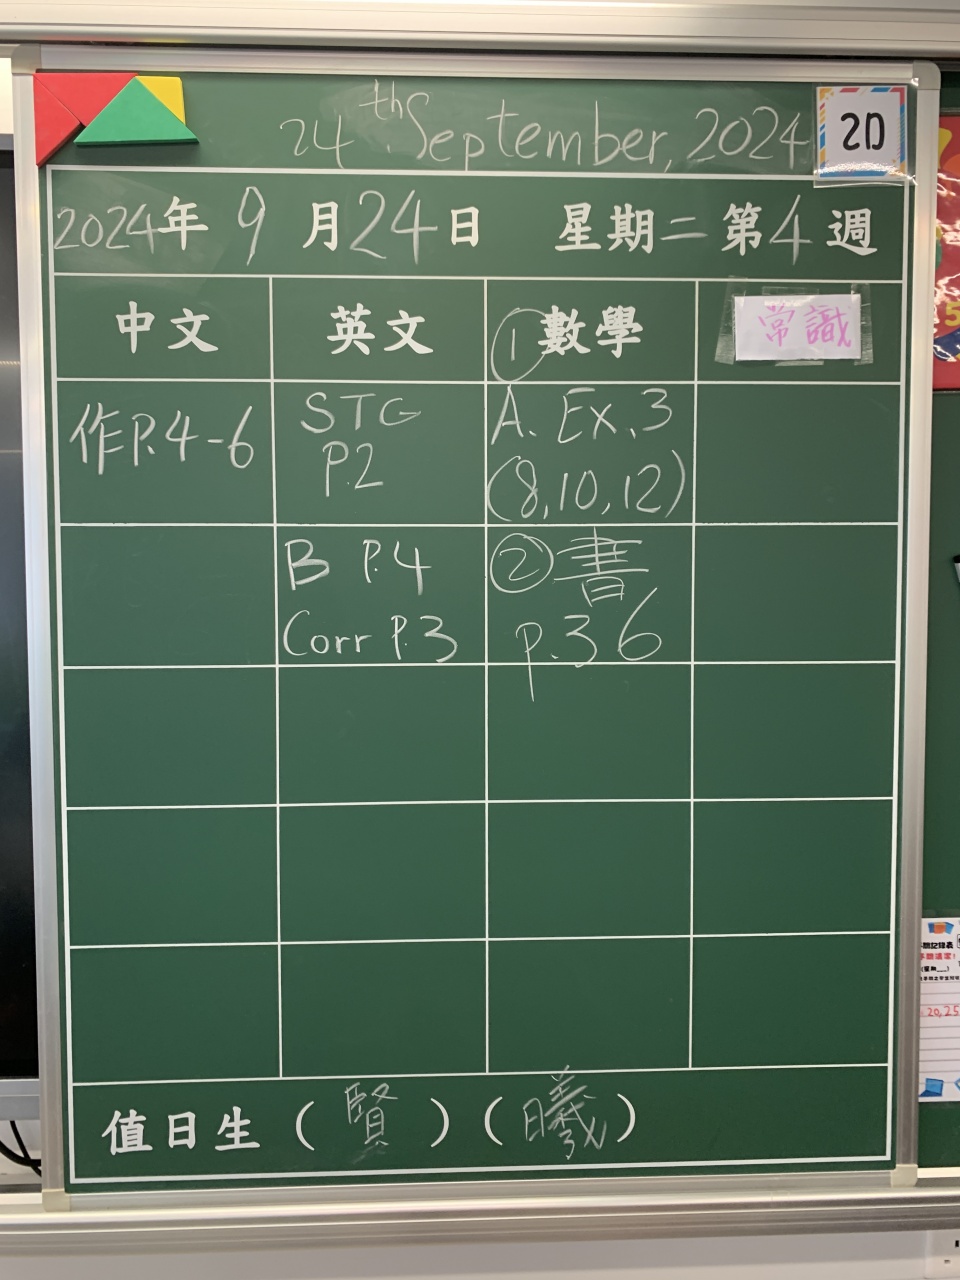 24th September, 2024
2D
2024年 9 月 24 日 星期二 第 4 週
中文 英文 ① 數學 常識
作P.4-6
STG
P.2
A. Ex.3
(8,10,12)
B P.4
Corr P.3
② 書
p.36
值日生 ( 賢 ) ( 曦 )
20,25